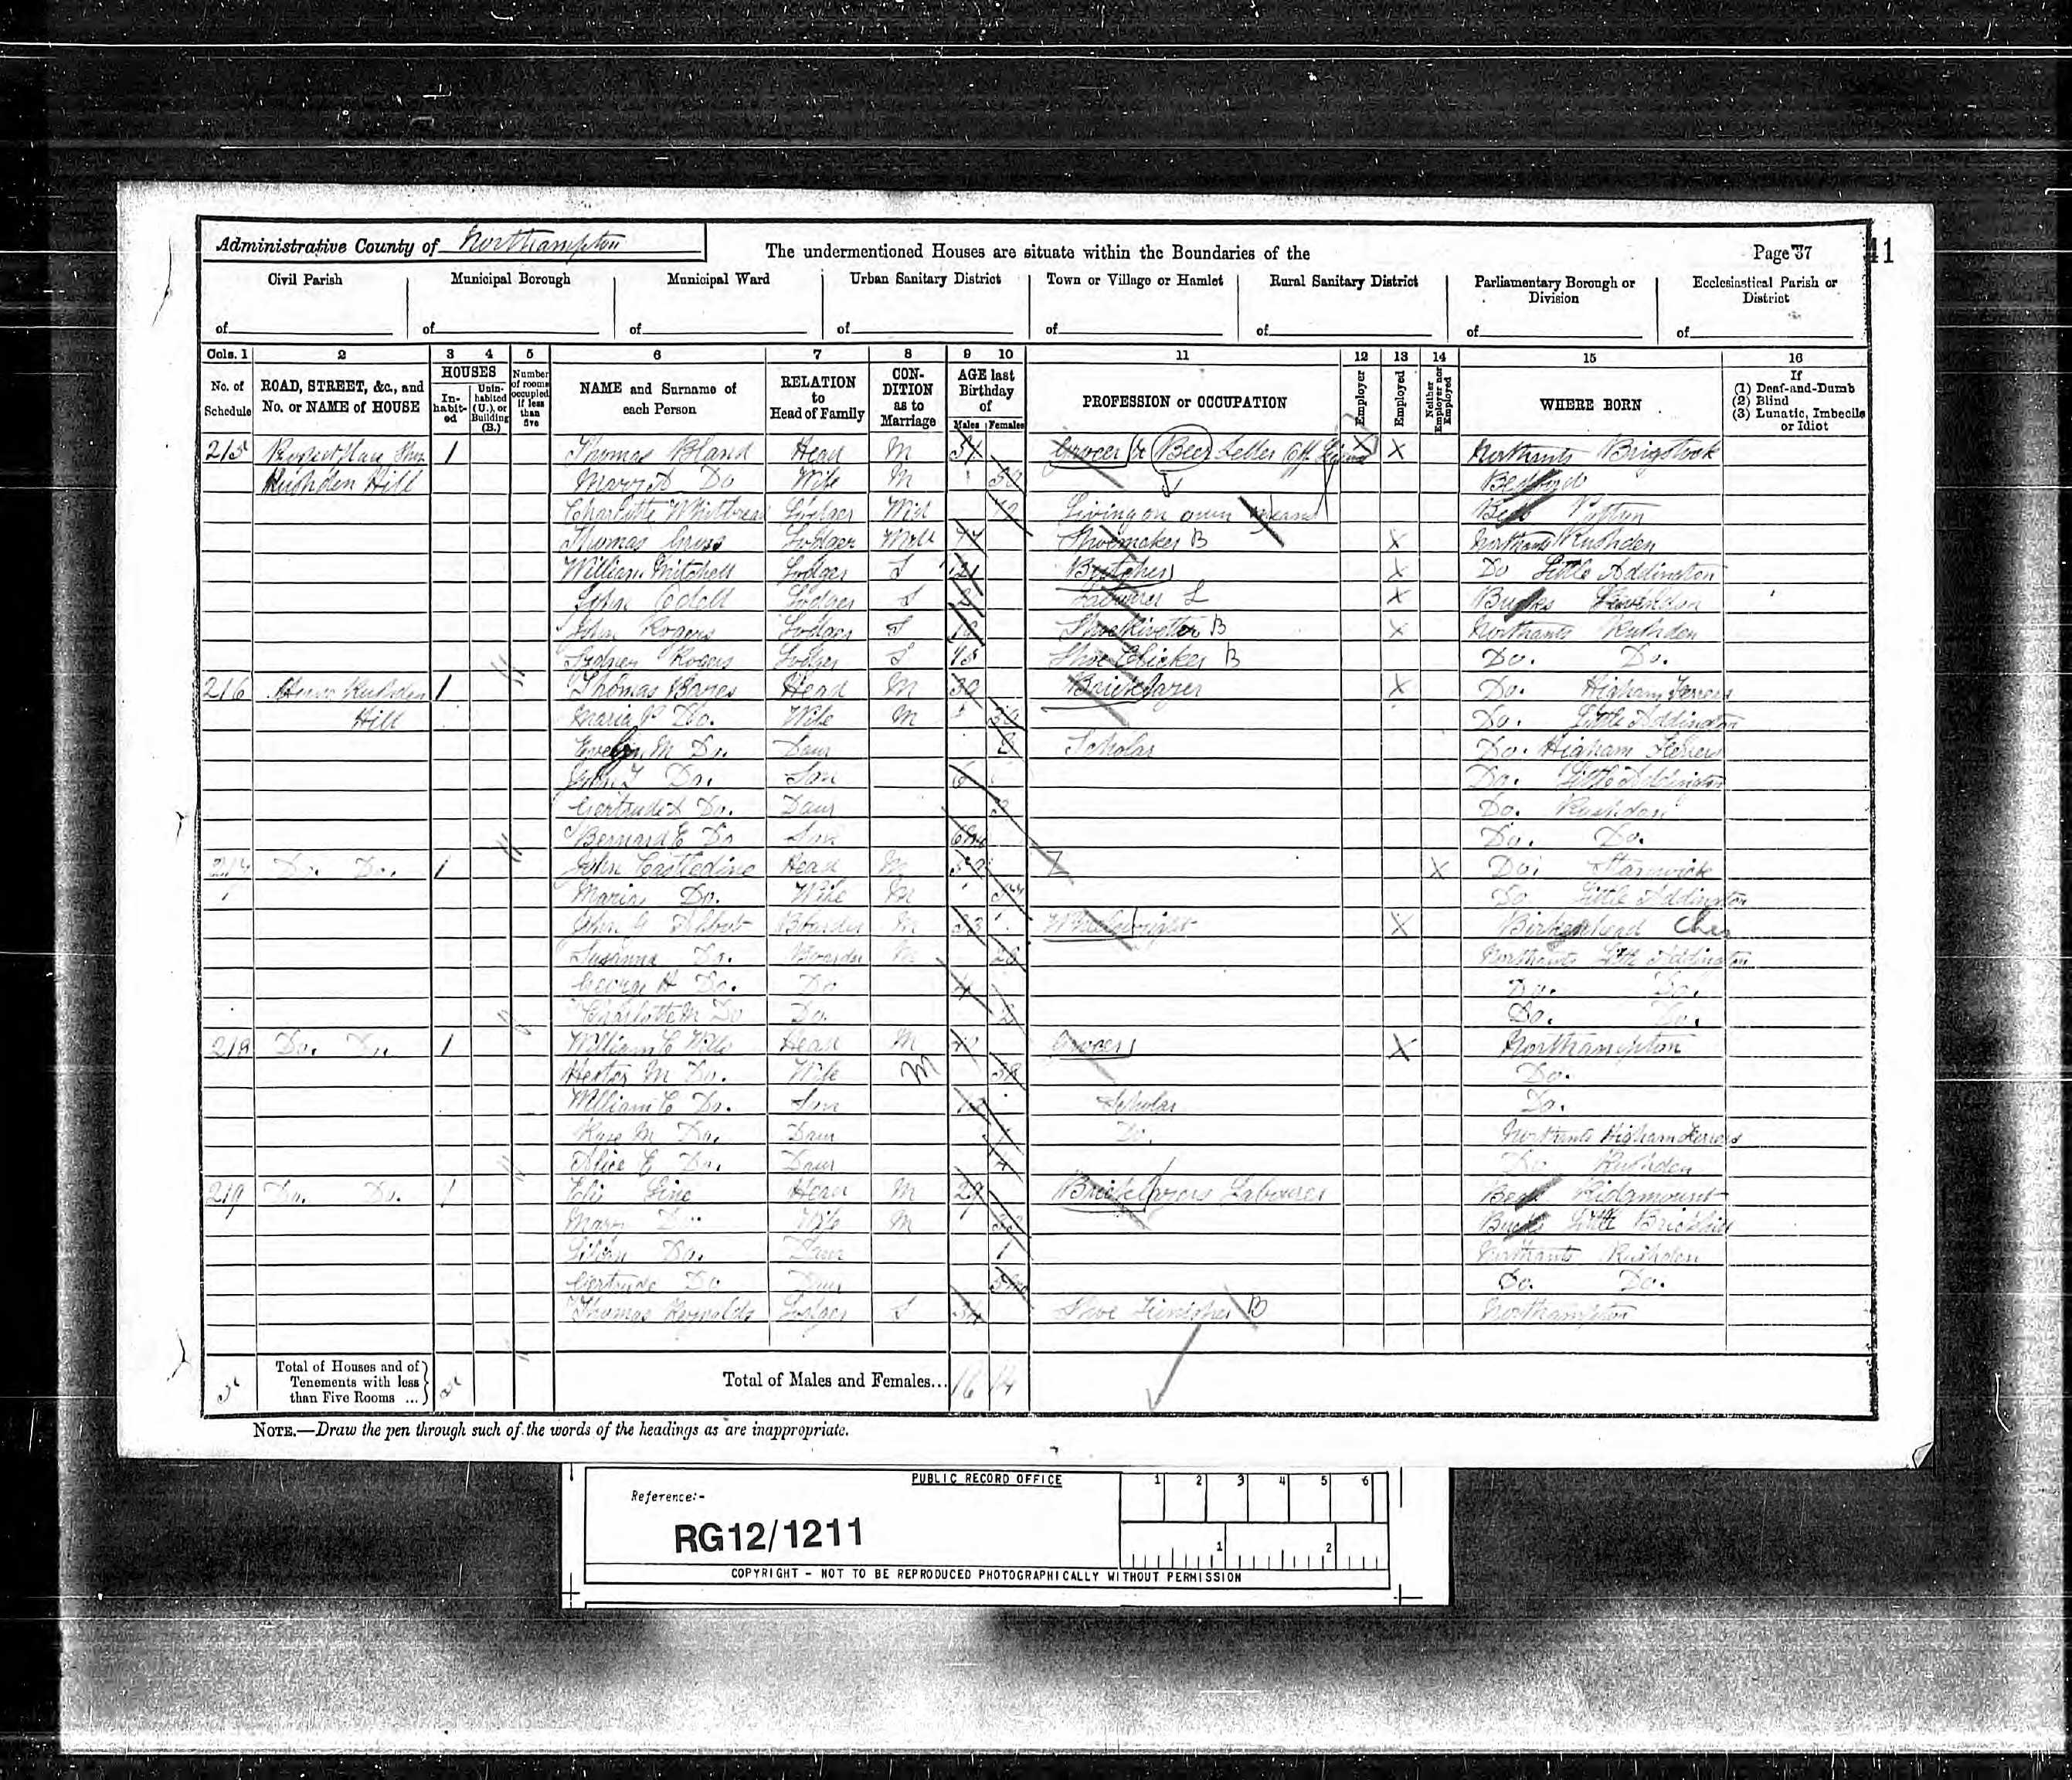 Administrative County of Northampton
The undermentioned Houses are situate within the Boundaries of the
Page 37
41
Civil Parish Municipal Borough Municipal Ward Urban Sanitary District Town or Village or Hamlet Rural Sanitary District Parliamentary Borough or Division Ecclesiastical Parish or District
of of of of of of of of
Cols. 1 2 3 4 5 6 7 8 9 10 11 12 13 14 15 16
No. of Schedule
ROAD, STREET, &c., and No. or NAME of HOUSE
HOUSES
In-habit-ed
Unin-habited (U.), or Building (B.)
Number of rooms occupied if less than five
NAME and Surname of each Person
RELATION to Head of Family
CON-DITION as to Marriage
AGE last Birthday of
Males Females
PROFESSION or OCCUPATION
Employer
Employed
Neither Employer nor Employed
WHERE BORN
If
(1) Deaf-and-Dumb
(2) Blind
(3) Lunatic, Imbecile or Idiot
215 1 Thomas Bland Head M Grocer & Beer Seller Off X X Northants Brigstock
Rushden Hill Mary A Do Wife M Bedford
Charlotte Whitbread Lodger Wid 72 Living on own means Bed Potton
Thomas Lodger 47 Shoemaker B X Northants Rushden
William Mitchell Lodger S 21 Butcher X Do Little Addington
John Lodger S Labourer L X Bucks
John Rogers Lodger S Shoe Rivetter B X Northants Rushden
Sidney Rogers Lodger S 15 Shoe Clicker B Do. Do.
216 House Rushden 1 Thomas Head M 30 Bricklayer X Do. Higham Ferrers
Hill Maria Do. Wife M 30 Do. Little Addington
M Do. Daur Scholar Do. Higham Ferrers
John T Do. Son 6 Do. Little Addington
Gertrude Do. Daur 2 Do. Rushden
Bernard E Do Son Do. Do.
217 Do. Do. 1 John Castledine Head M 59 X Do. Stanwick
Maria Do. Wife M Do Little Addington
John G Boarder M 33 Wheelwright X Birkenhead Ches
Susanna Do. Boarder M 28 Northants Little Addington
George H Do. Do 4 Do. Do.
Charlotte M Do Do. 2 Do. Do.
218 Do. Do. 1 William C Wills Head M 40 Grocer X Northampton
Hester M Do. Wife M 38 Do.
William C Do. Son Scholar Do.
Rose M Do. Daur Do. Northants Higham Ferrers
Alice E Do. Daur 4 Do Rushden
219 Do. Do. 1 Eli Line Head M 29 Bricklayers Labourer Bed Ridgmount
Mary Do. Wife M Bucks Little Brickhill
Lilian Do. Daur 1 Northants Rushden
Gertrude Do Daur Do. Do.
Thomas Reynolds Lodger S 34 Shoe Finisher B Northampton
5 Total of Houses and of Tenements with less than Five Rooms ... 5 Total of Males and Females... 16 14
NOTE.—Draw the pen through such of the words of the headings as are inappropriate.
PUBLIC RECORD OFFICE 1 2 3 4 5 6
Reference:-
RG12/1211
1 2
COPYRIGHT - NOT TO BE REPRODUCED PHOTOGRAPHICALLY WITHOUT PERMISSION